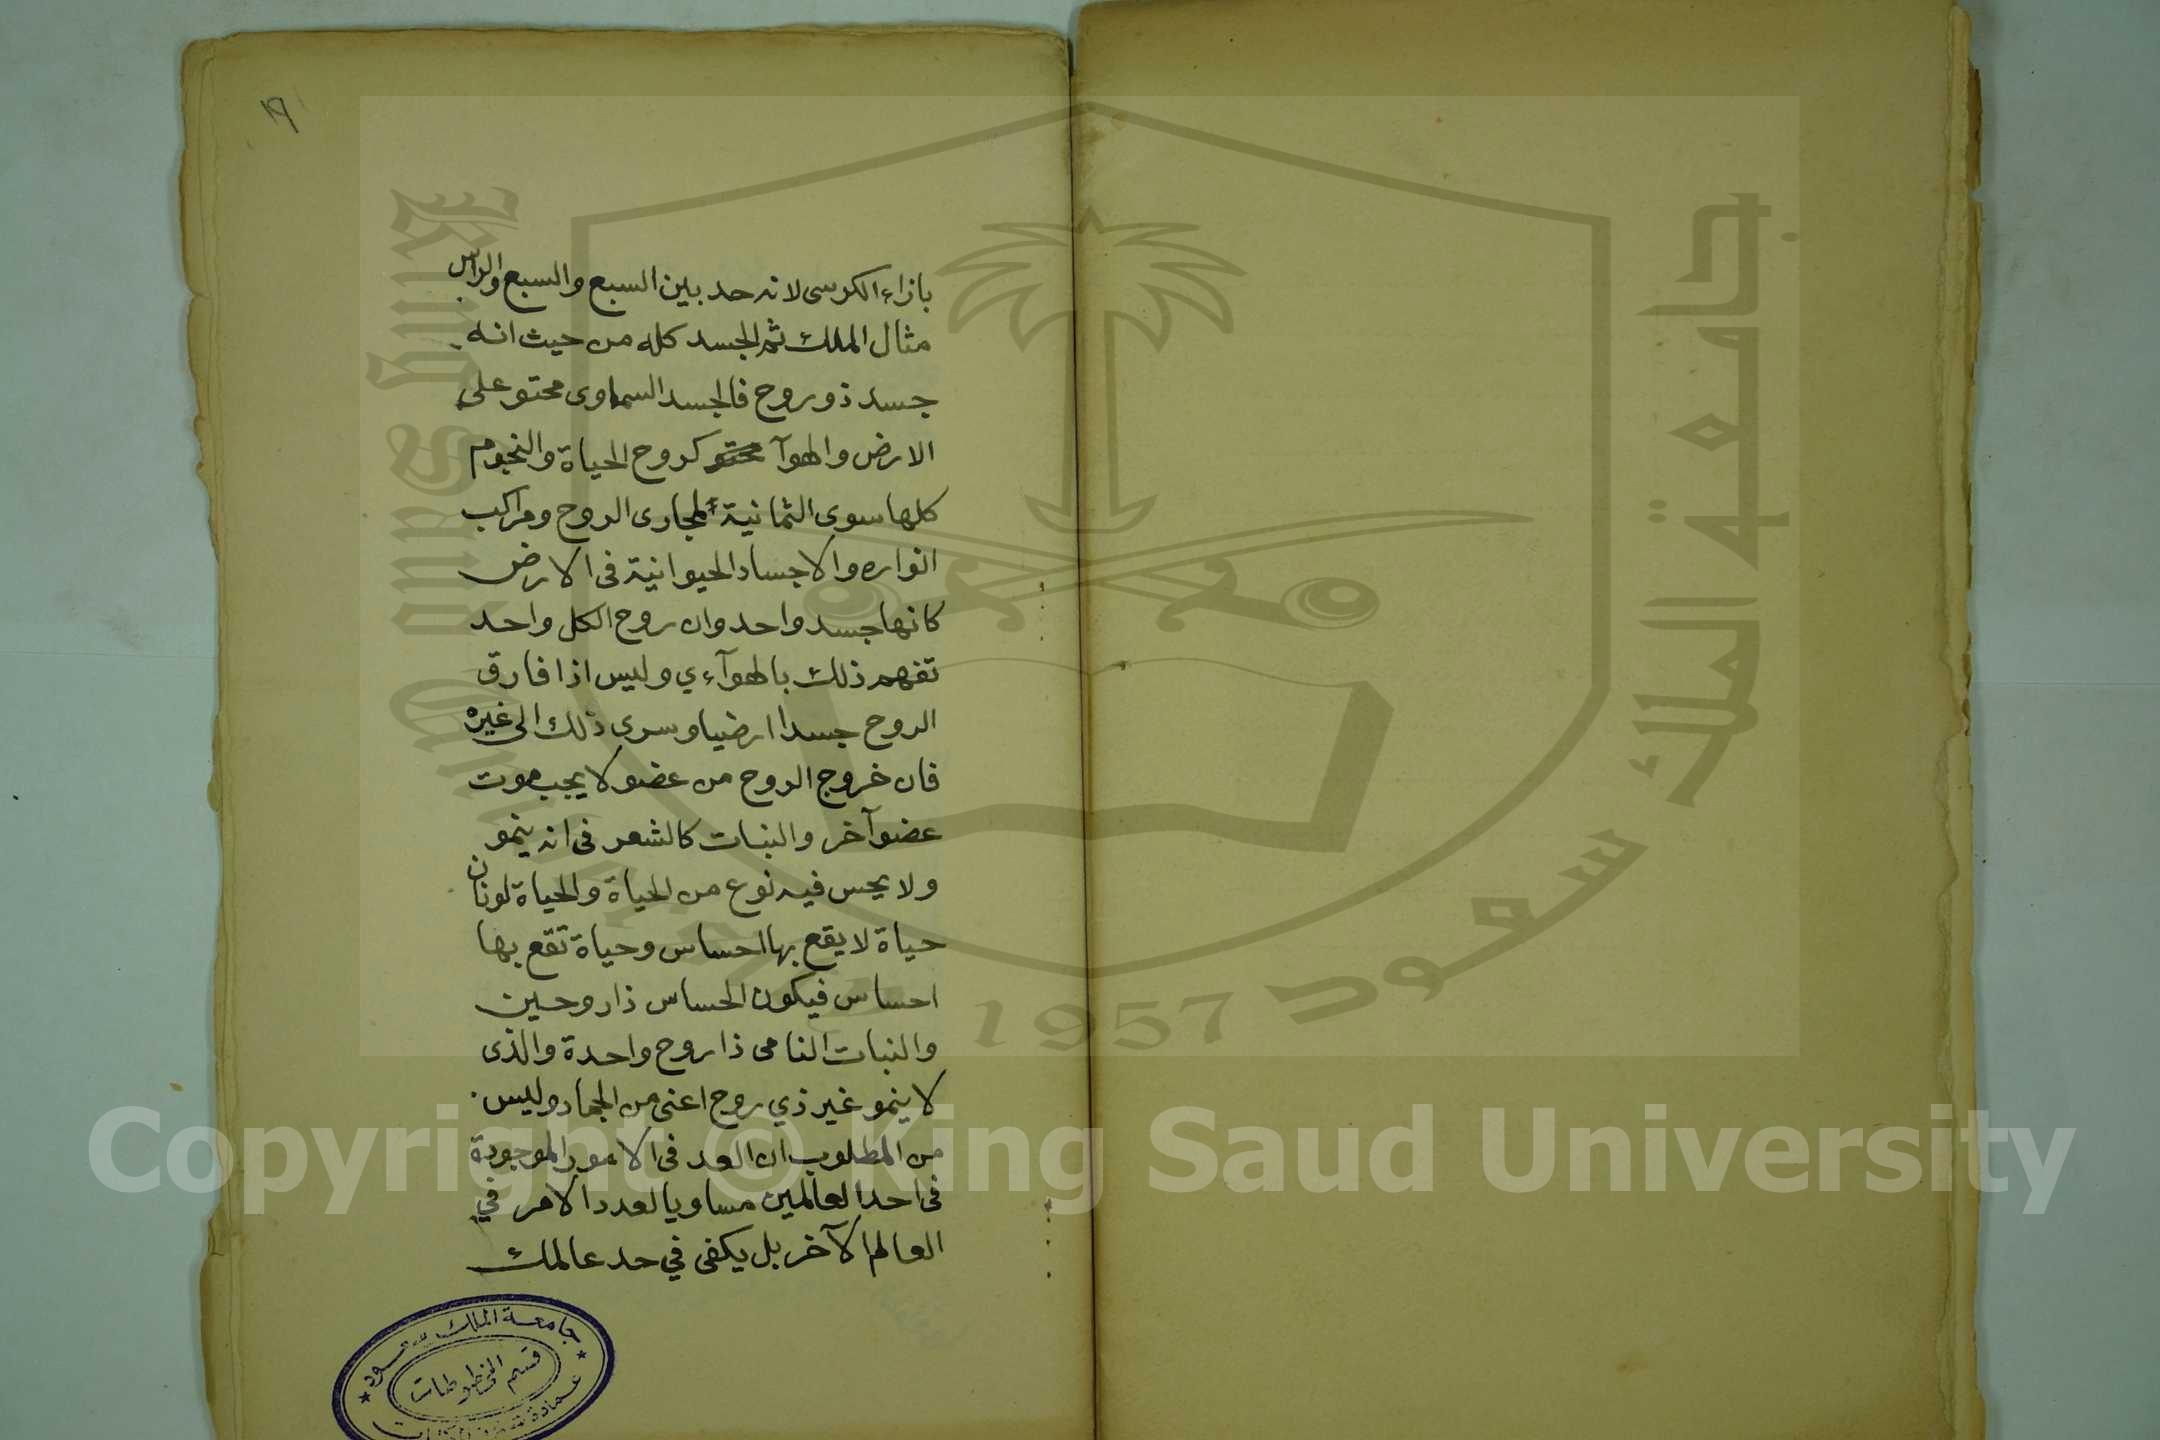 ١٩
بازاء الكرسى لانه حد بين السبع والسبع والراس
مثال الملك ثم الجسد كله من حيث انه
جسد ذو روح فالجسد السماوى محتو على
الارض والهوآ محتو كروح الحياة والنجوم
كلها سوى الثمانية لمجارى الروح ومراكب
انواره والاجساد الحيوانية فى الارض
كانها جسد واحد وان روح الكل واحد
تفهم ذلك بالهوآءي وليس اذا فارق
الروح جسدا ارضيا وسرى ذلك الى غيره
فان خروج الروح من عضو لا يجب موت
عضو آخر والنبات كالشعر فى انه ينمو
ولا يحس فيه نوع من الحياة والحياة لونان
حياة لا يقع بها احساس وحياة تقع بها
احساس فيكون الحساس ذا روحين
والنبات النامى ذا روح واحدة والذى
لا ينمو غير ذي روح اعنى من الجماد وليس
من المطلوب ان العد فى الامور الموجودة
فى احد العالمين مساويا لعدد الامر في
العالم الآخر بل يكفى في حد عالمك
جامعة الملك سعود
قسم المخطوطات
جامعة الملك سعود
King Saud University
1957
Copyright © King Saud University